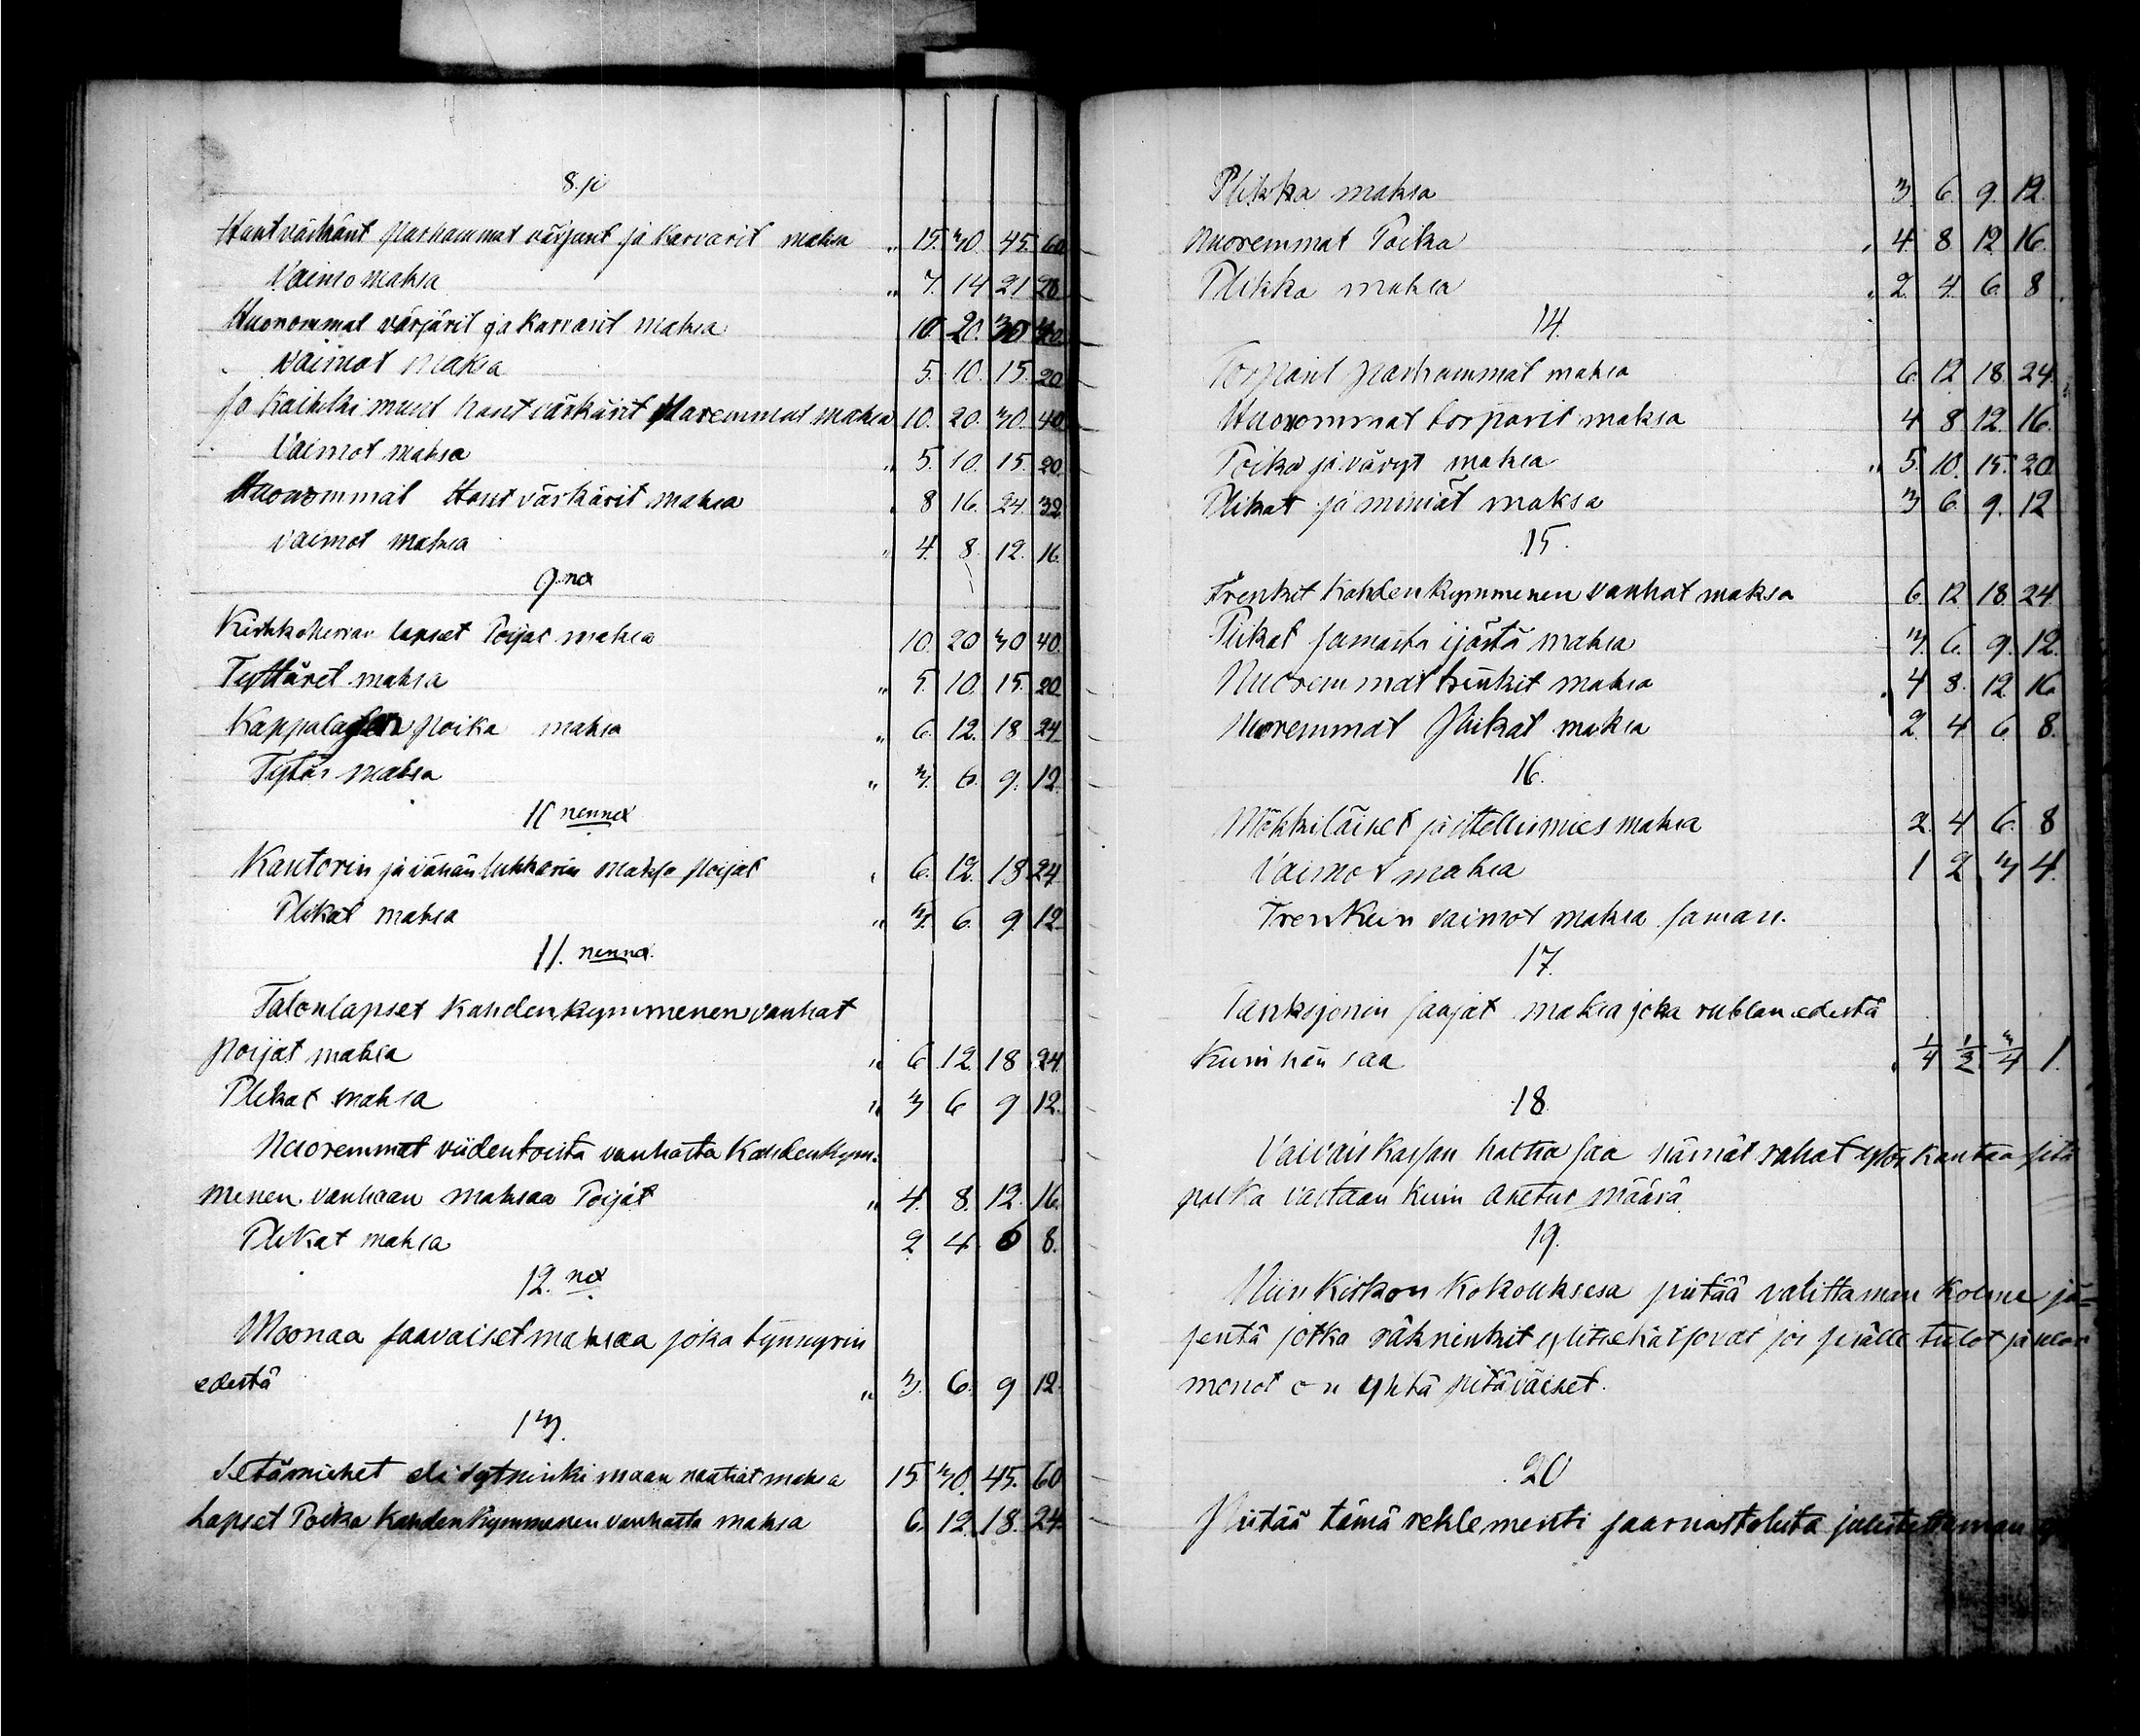 8. ji
Hantvärkärit parhammat värjärit ja karvarit maksa „ 15. 30. 45. 60
Vaimo maksa „ 7. 14 21 28
Huonommat värjärit ja karvarit maksa 10. 20. 30 40.
Vaimot maksa 5. 10. 15. 20
Ja kaihki muut hantvärkärit paremmat maksa 10. 20. 30. 40
Vaimot maksa „ 5. 10. 15. 20.
Huonommat Hantvärkärit maksa 8 16. 24. 32
vaimot maksa „ 4. 8. 12. 16.
9. nä
Kirkkoherran lapset Poijat maksa 10. 20 30 40.
Tyttäret maksa „ 5. 10. 15. 20
Kappalaisen poika maksa „ 6. 12. 18 24.
Tytär maksa „ 3. 6. 9. 12.
10 nennä
Kantorin ja vähän lukkarin maksa poijat „ 6. 12. 18 24
Plikat maksa „ 3. 6. 9. 12.
11. nennä
Talonlapset Kahdenkymmenen vanhat
poijat maksa „ 6 12. 18 24.
Plikat maksa „ 3 6 9 12.
Nuoremmat viidentoista vanhasta Kahdenkym-
menen vanhaan maksaa Poijat „ 4. 8. 12. 16.
Plikat maksa 2 4 6 8.
12. nä
Moonaa saavaiset maksaa joka tynnyrin
edestä „ 3. 6. 9 12.
13.
Setämiehet eli sytninki maan nautiat maksa 15 30. 45. 60
Lapset Poika Kahdenkymmenen vanhasta maksa 6. 12. 18. 24
Plikka maksa 3 6 9. 12.
Nuoremmat Poika „ 4. 8 12 16.
Plikka maksa „ 2. 4. 6. 8.
14.
Torparit parhammat maksa 6. 12 18. 24.
Huonommat torparit maksa 4 8 12. 16.
Poika ja vävyt maksa „ 5. 10. 15. 20.
Plikat ja miniät maksa 3 6 9. 12
15.
Trenkit Kahdenkymmenen vanhat maksa 6. 12 18. 24
Piikat samasta ijästä maksa 3. 6. 9. 12.
Nuoremmat trenkit maksa „ 4 8. 12. 16
Nuoremmat Piikat maksa 2. 4 6 8.
16.
Mökkiläiset ja ittellismies maksa 2. 4 6. 8
Vaimot maksa 1 2 3 4.
Trenkein vaimot maksa saman.
17.
Panksjonin saajat maksa joka rublan edestä
kuin hän saa „ 1/4 1/2 3/4 1.
18.
Vaivaiskassan haltia saa nämät rahat ylös kantaa sitä
palkka vastaan kuin asetus määrä.
19.
Niin Kirkon Kokouksesa piitää valittaman kolme jä-
sentä jotka räkninkit ylitsekatsovat jos sisälle tulot ja
menot on yhtä pitäväiset.
20
Piitää tämä reklementi saarnastolista julistettaman